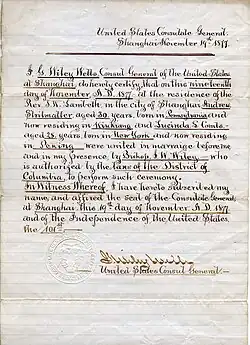 United States Consulate General.
Shanghai November 19th 1877.
I, G. Wiley Wells, Consul General of the United States
at Shanghai, do hereby certify that on this nineteenth
day of November, A.D. 1877, at the residence of the
Rev. J.W. Lambuth in the city of Shanghai Andrew
Stritmatter aged 30 years, born in Pennsylvania and
now residing in Kiukiang, and Lucinda L Combs
aged 28 years, born in New York and now residing
in Peking were united in marriage before me
and in my presence, by Bishop I W Wiley who
is authorized by the Laws of the District of
Columbia, to perform such ceremony.
In Witness Whereof, I have hereto subscribed my
name, and affixed the seal of the Consulate General,
at Shanghai this 19th day of November A.D. 1877
and of the Independence of the United States,
the
United States Consul General